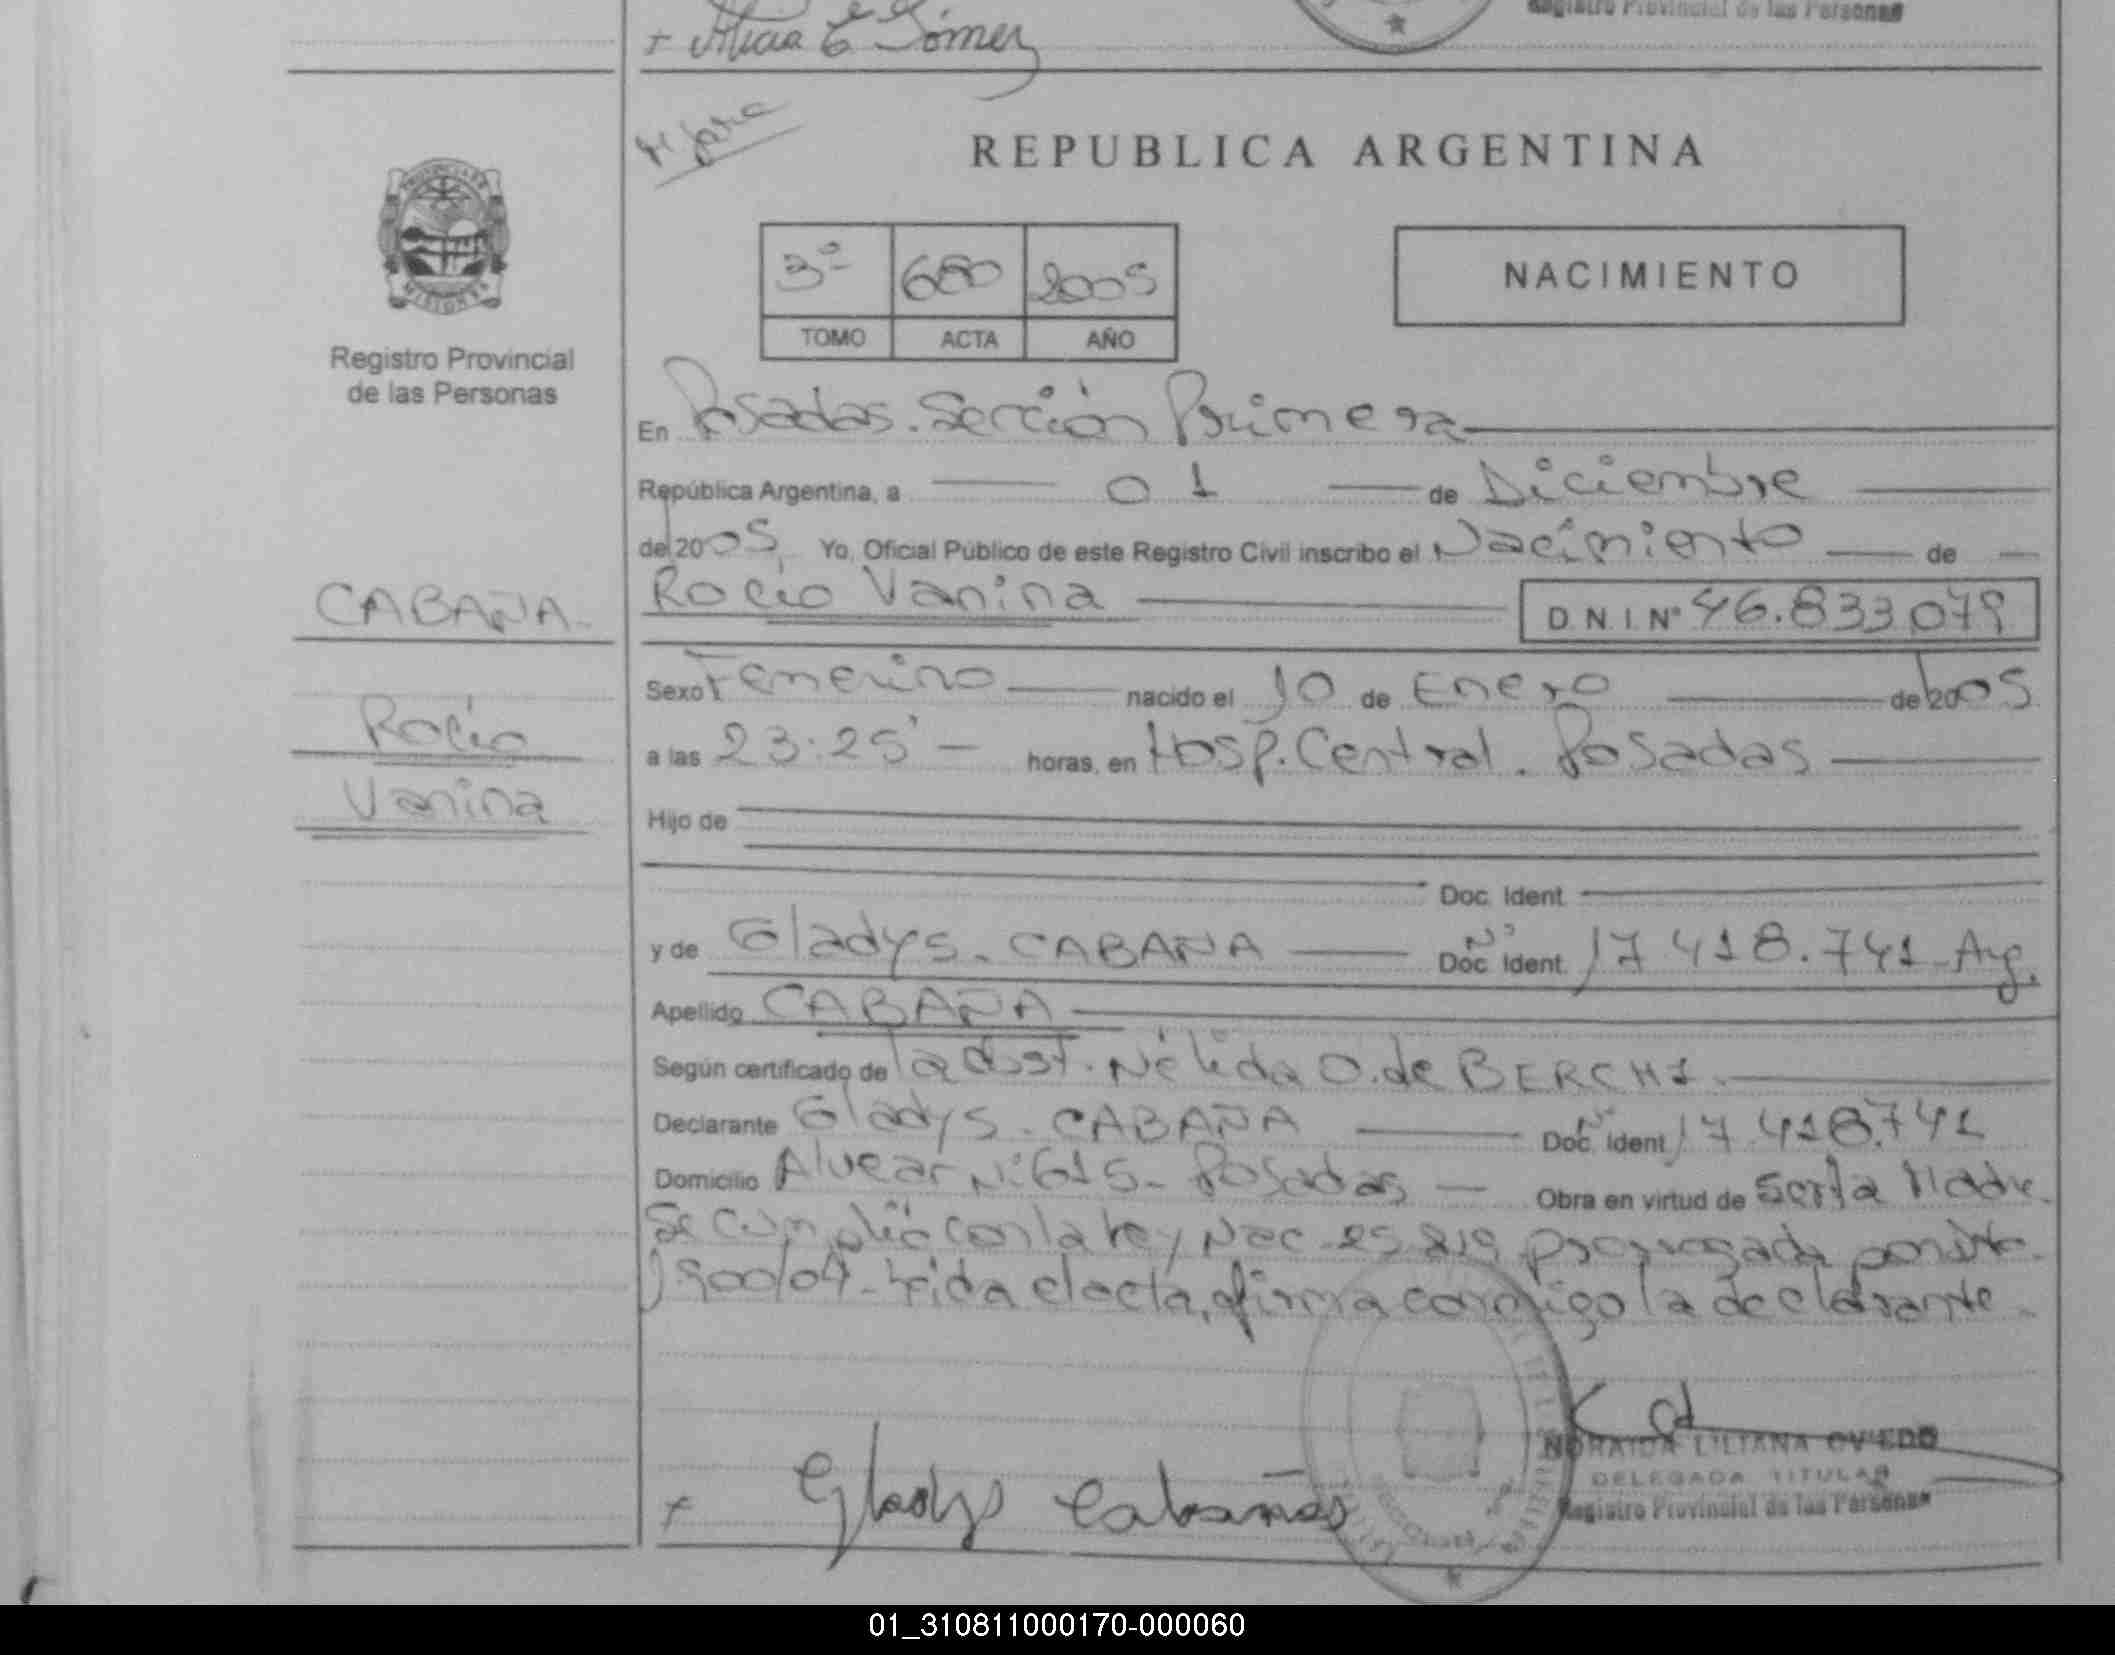 + Alicia E Gómez
Registro Provincial de las Personas
REPUBLICA ARGENTINA
PROVINCIA DE
MISIONES
3º 680 2005
TOMO ACTA AÑO
NACIMIENTO
Registro Provincial
de las Personas
En Posadas. Sección Primera
República Argentina, a 01 de Diciembre
de 2005, Yo, Oficial Público de este Registro Civil inscribo el Nacimiento de
CABAÑA-
Rocío
Vanina
Rocío Vanina D.N.I. Nº 46.833.079
Sexo Femenino nacido el 10 de Enero de 2005
a las 23:25' horas, en Hosp. Central. Posadas
Hijo de
Doc. Ident.
y de Gladys - CABAÑA Nº Doc. Ident. 17.418.741 Arg.
Apellido CABAÑA
Según certificado de la Obst. Nélida O. de BERCHI.
Declarante Gladys - CABAÑA Nº Doc. Ident. 17.418.741
Domicilio Alvear Nº 615- Posadas Obra en virtud de ser la Madre.
Se cumplió con la ley Nac. 25.819 prorrogada por
1900/04- Leída el acta, firma conmigo la declarante.
+ Gladys Cabañas
NORAIDA LILIANA OVIEDO
DELEGADA TITULAR
Registro Provincial de las Personas
01_310811000170-000060